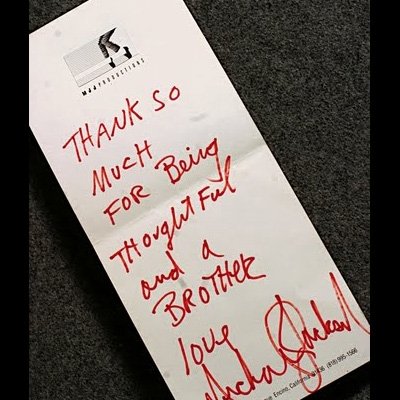 MJJ PRODUCTIONS
THANK SO
MUCH
FOR Being
Thoughtful
and a
BROTHER
love
Michael Jackson
Encino, California (818) 995-1566